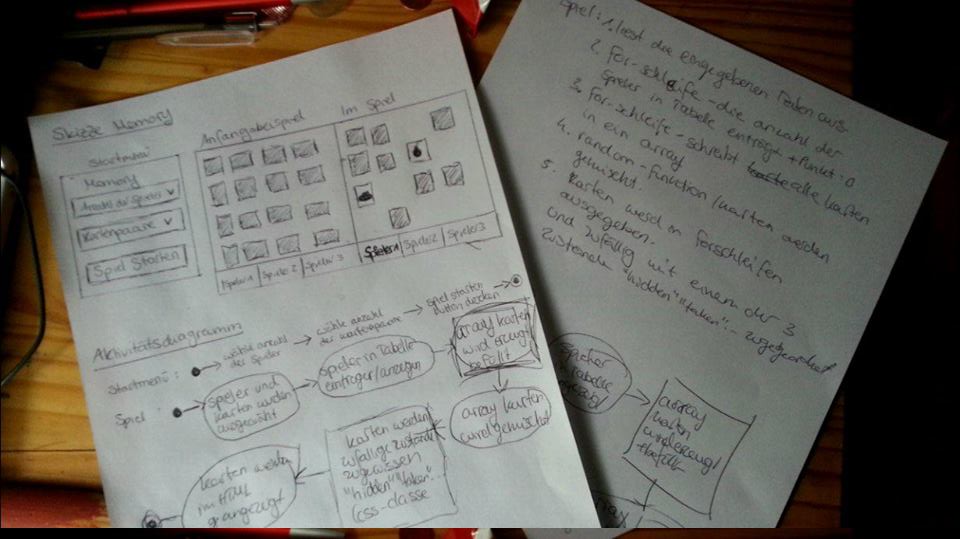 Skizze Memory
Startmenü
Memory
Anzahl der Spieler
Kartenpaare
Spiel Starten
Anfangsbeispiel
Im Spiel
Spieler 1
Spieler 2
Spieler 3
Spieler 1
Spieler 2
Spieler 3
Aktivitätsdiagramm
Startmenü:
wähle anzahl
der Spieler
wähle anzahl
der kartenpaare
spiel starten
button drücken
Spiel
speler und
karten wurden
ausgewählt
Speler in Tabelle
eintragen/anzeigen
array karten
wird erzeugt
befüllt
array karten
wird gemischt
karten werden
zufällige zustände
zugewissen
"hidden" "taken"...
css-classe
karten werden
im HTML
angezeigt
Spiel: 1. liest die eingegebenen Felder aus
2. For-schleife - die anzahl der
Spieler in Tabelle einträgt + Punkt: 0
3. For-schleife - schreibt alle karten
in ein array
4. random-Funktion / karten werden
gemischt.
5. karten werd in forschleifen
ausgegeben.
und zufällig mit einem der 3
zustände "hidden" "taken"... - zugeordnet
Spieler
Tabelle
array
karten
wird erzeugt
+befüllt
array